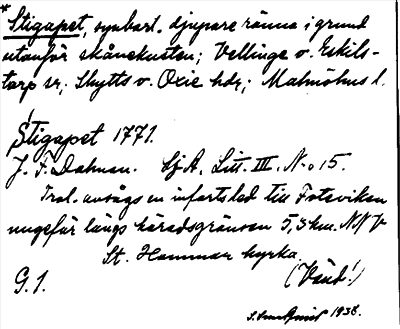 * Stigapet, synbart. djupare ränna i grund
utanför skånekusten; Vellinge o. Eskils-
torp sr; Skytts o. Oxie hdr; Malmöhus l.
Stigapet 1771.
J. F. Dahman. Sj.A. Litt. III, N:o 15.
Trol. avsågs en infartsled till Foteviken
ungefär längs häradsgränsen 5,3 km. NNV
St. Hammar kyrka.
G. 1. (Vänd!)
1938.